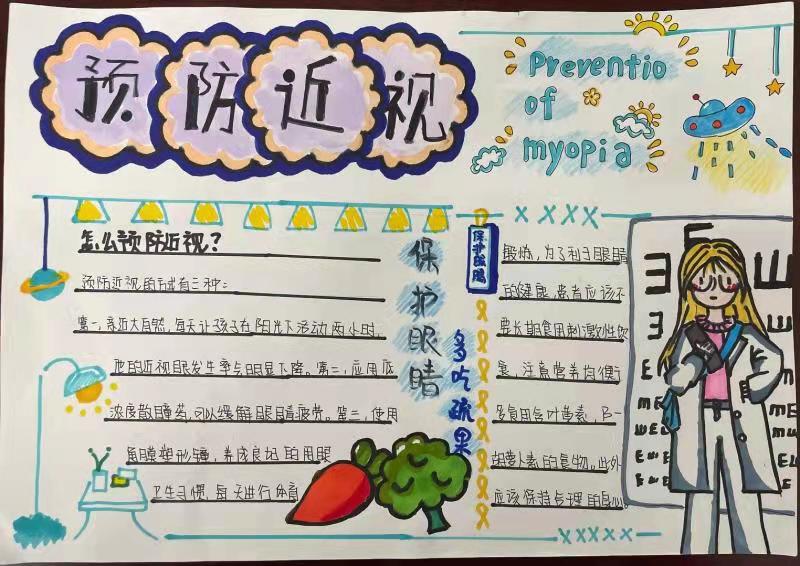 预防近视
Preventio
of
myopia
怎么预防近视？
预防近视的方式有三种：
第一，亲近大自然，每天让孩子在阳光下活动两小时，
他的近视眼发生率会明显下降。第二，应用低
浓度散瞳药，可以缓解眼睛疲劳。第三，使用
角膜塑形镜，养成良好的用眼
卫生习惯，每天进行体育
保护眼睛
多吃蔬果
保护眼睛
锻炼，为了利于眼睛
的健康，患者应该不
要长期食用刺激性饮
食，注意营养均衡，
多食用含叶黄素，B-
胡萝卜素的食物。此外
应该保持合理的